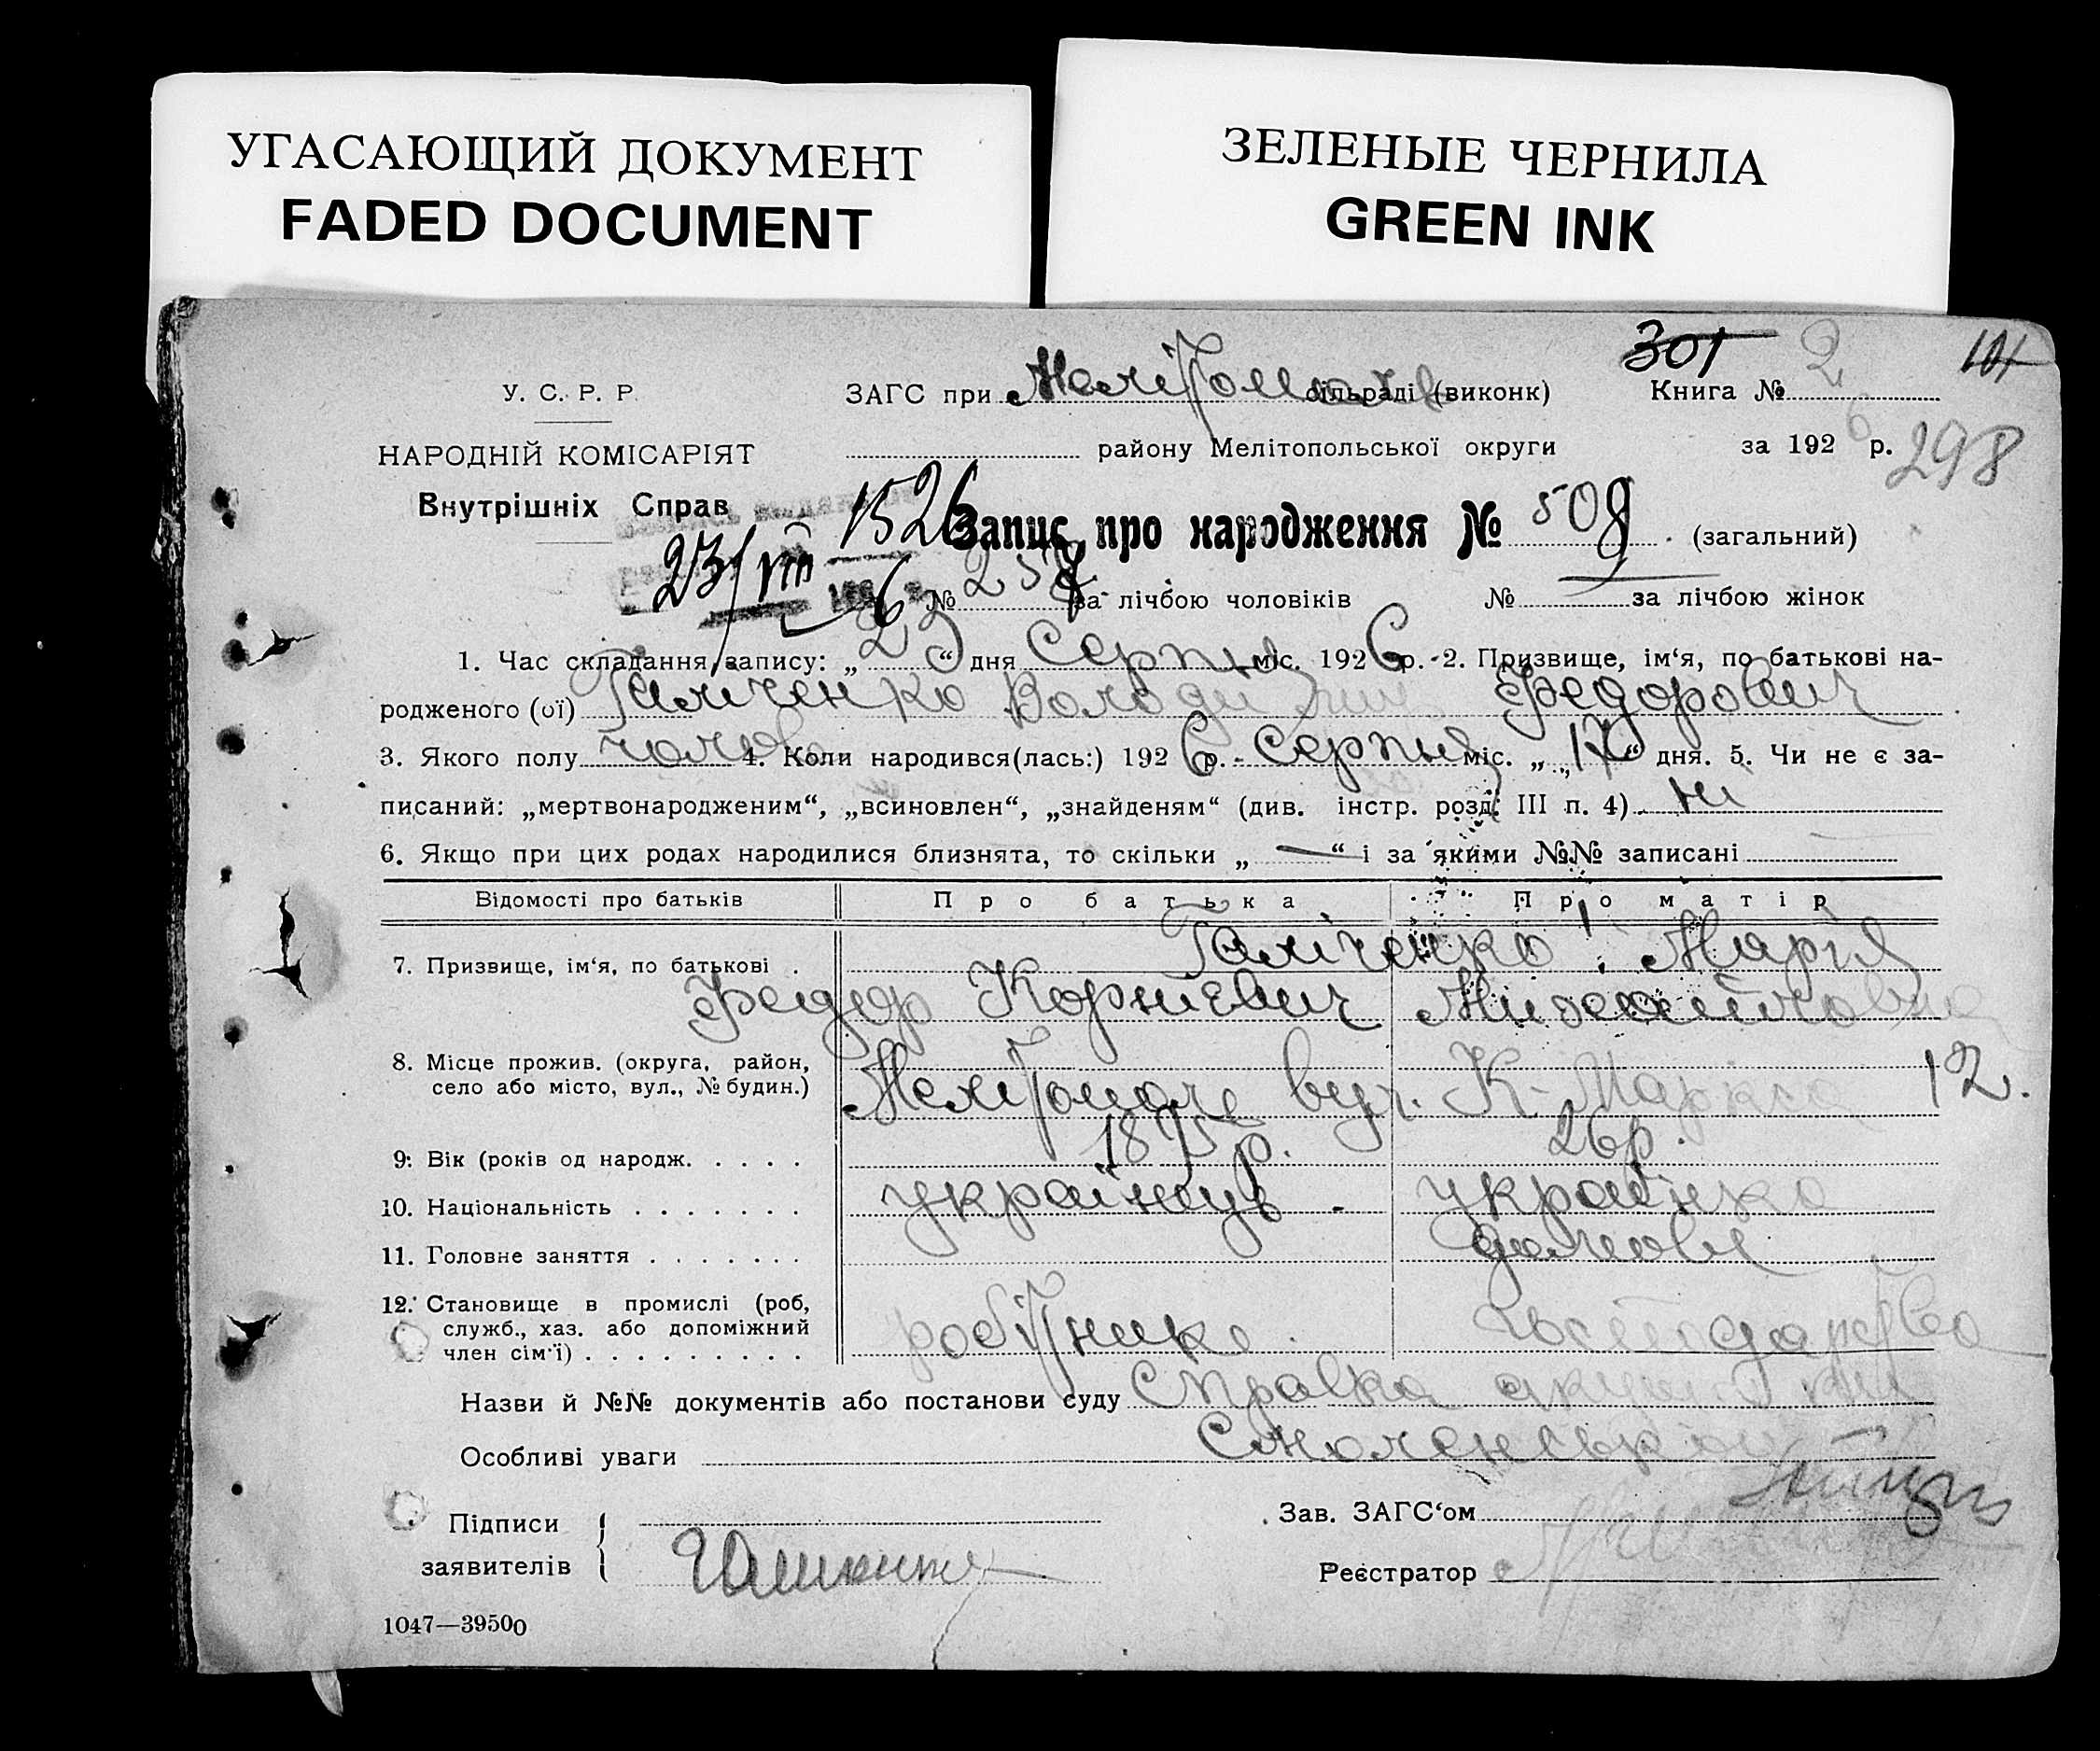 УГАСАЮЩИЙ ДОКУМЕНТ
FADED DOCUMENT
ЗЕЛЕНЫЕ ЧЕРНИЛА
GREEN INK
301 101
У. С. Р. Р. ЗАГС при Мелітополь сільраді (виконк) Книга № 2
НАРОДНІЙ КОМІСАРІЯТ району Мелітопольської округи за 1926 р. 298
Внутрішніх Справ 1526 Запис про народження № 509 (загальний)
23/VIII 6 № за лічбою чоловіків № за лічбою жінок
1. Час складання запису: „23“ дня Серпня міс. 1926 р. 2. Призвище, ім‘я, по батькові на-
родженого (ої) Галіченко Володимир Федорович
3. Якого полу чолов 4. Коли народився(лась:) 1926 р. Серпня міс. „17“ дня. 5. Чи не є за-
писаний: „мертвонародженим“, „всиновлен“, „знайденям“ (див. інстр. розд. III п. 4) ні
6. Якщо при цих родах народилися близнята, то скільки „—“ і за якими №№ записані
Відомості про батьків Про батька Про матір
7. Призвище, ім‘я, по батькові Галіченко Марія
Федор Корнієвич Михайловна
8. Місце прожив. (округа, район,
село або місто, вул., № будин.) Мелітополь вул. К-Маркса 12.
9. Вік (років од народж. 1895 р. 26 р.
10. Національність українць українка
11. Головне заняття домове
12. Становище в промислі (роб,
служб., хаз. або допоміжний
член сім‘ї) робітник господарство
Назви й №№ документів або постанови суду Справка акушерки
Особливі уваги Смоленської
Підписи
заявителів
Зав. ЗАГС‘ом
Реєстратор
1047—39500